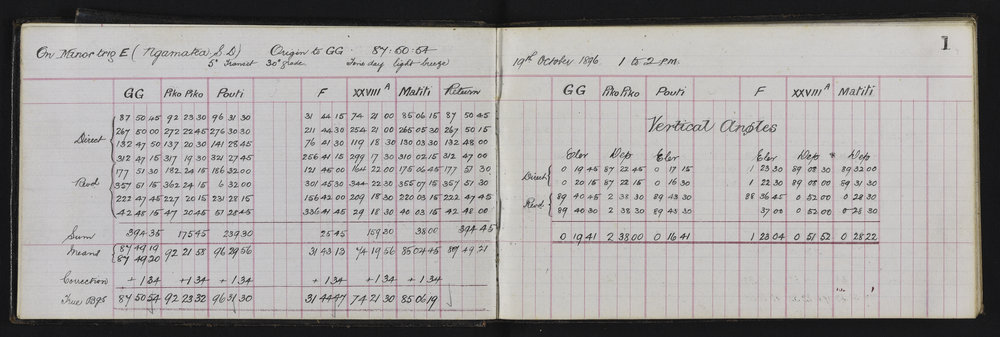 On Minor trig E ( Ngamatea S D ) Origin to GG 87.50.54
5" Transit 30° grade Fine day light breeze
GG Piko Piko Pouti F XXVIII A Matiti Return
Direct 87 50 45 92 23 30 96 31 30 31 44 15 74 21 00 85 06 15 87 50 45
267 50 00 272 22 45 276 30 30 211 44 30 254 21 00 265 05 30 267 50 15
132 47 50 137 20 30 141 28 45 76 41 30 119 18 30 130 03 30 132 48 00
312 47 15 317 19 30 321 27 45 256 41 15 299 17 30 310 02 15 312 47 00
Revd 177 51 30 182 24 15 186 32 00 121 45 00 164 22 00 175 06 45 177 51 30
357 51 15 362 24 15 6 32 00 301 45 30 344 22 30 355 07 15 357 51 30
222 47 45 227 20 15 231 28 15 156 42 00 209 18 30 220 03 15 222 47 45
42 48 15 47 20 45 51 28 45 336 41 45 29 18 30 40 03 15 42 48 00
Sum 394 35 175 45 239 30 25 45 159 30 38 00 394 45
Means { 87 49 19 92 21 58 96 29 56 31 43 13 74 19 56 85 04 45 87 49 21
87 49 20
Correction + 1 34 + 1 34 + 1 34 + 1 34 + 1 34 + 1 34
True Bgs 87 50 54 92 23 32 96 31 30 31 44 47 74 21 30 85 06 19
1
19th October 1896 1 to 2 p.m.
GG Piko Piko Pouti F XXVIII A Matiti
Vertical Angles
Elev Dep Elev Elev Dep * Dep
Direct { 0 19 45 87 22 45 0 17 15 1 23 30 89 08 30 89 32 00
0 20 15 87 22 15 0 16 30 1 22 30 89 08 00 89 31 30
Revd { 89 40 45 2 38 30 89 43 30 88 36 45 0 52 00 0 28 30
89 40 30 2 38 30 89 43 30 37 00 0 52 00 0 28 30
0 19 41 2 38 00 0 16 41 1 23 04 0 51 52 0 28 22